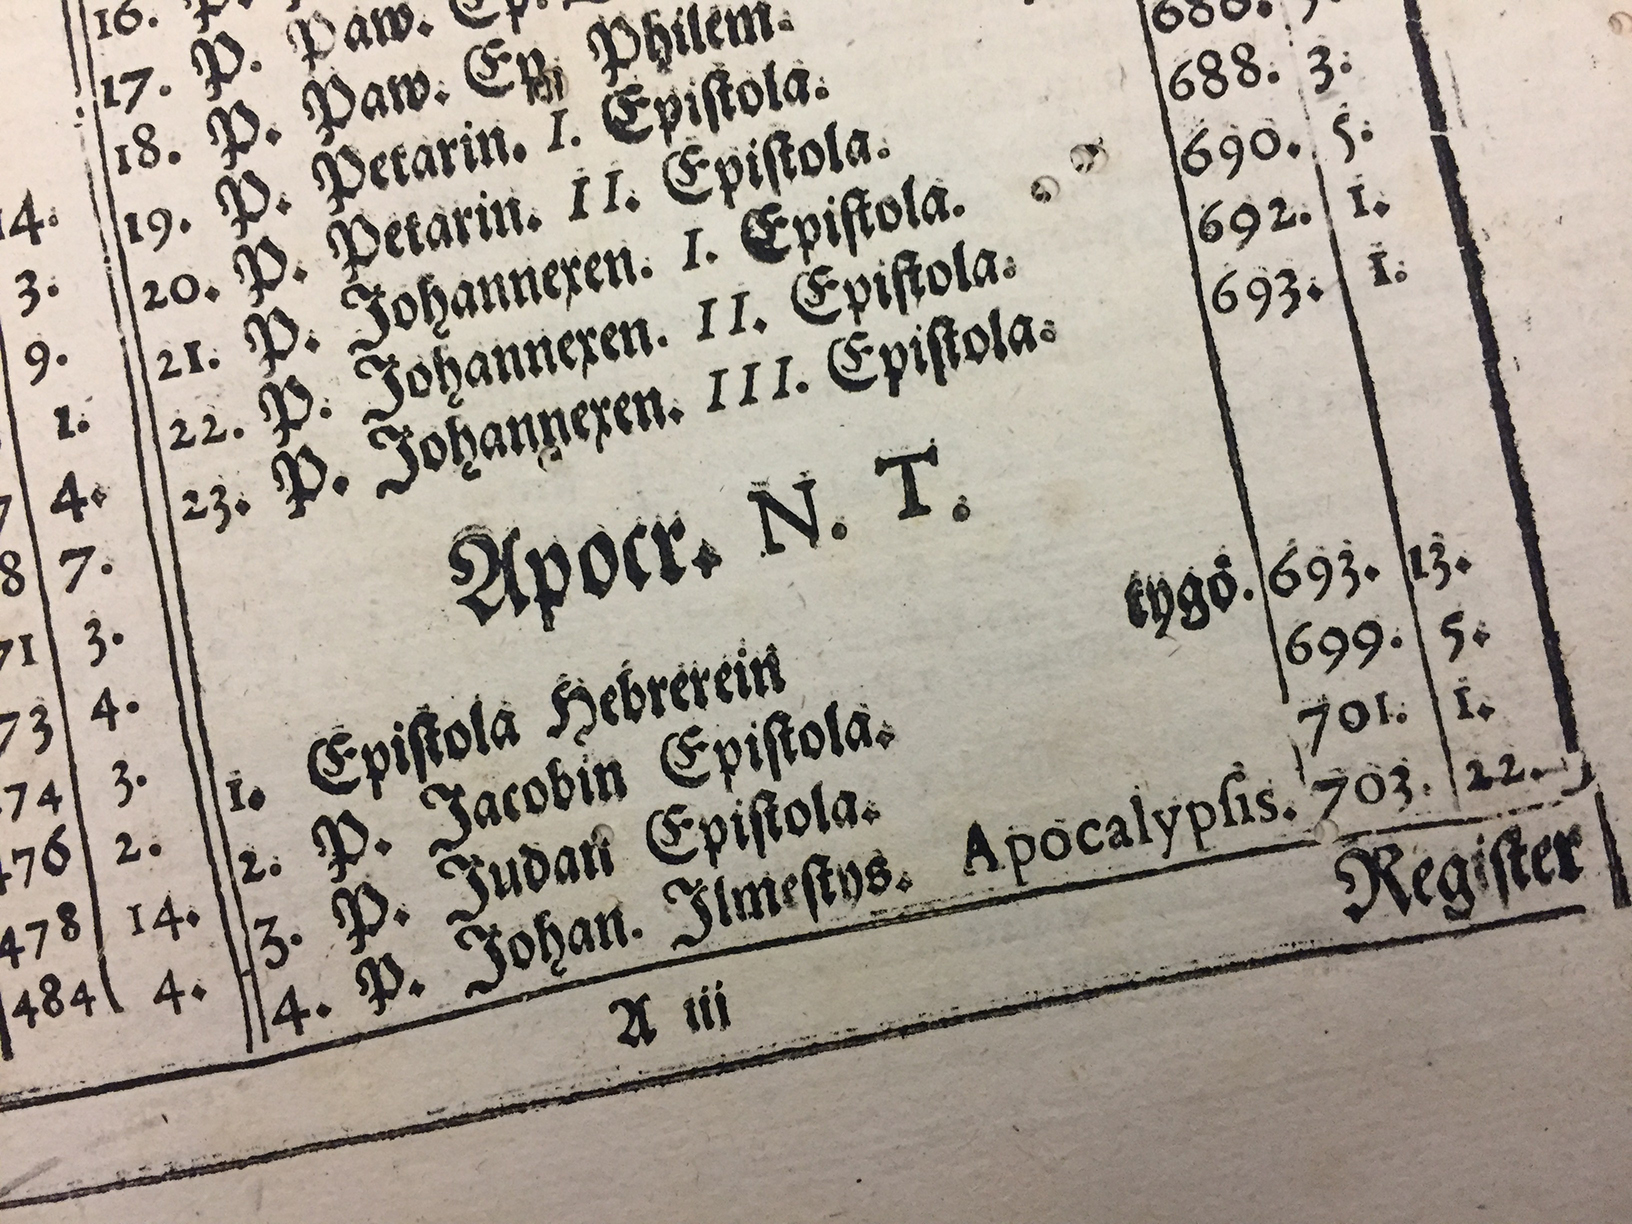 4.
3.
9.
1.
7 4.
8 7.
71 3.
73 4.
474 3.
476 2.
478 14.
484 4.
16. P.
17. P. Paw. Ep.
18. P. Paw. Ep. Philem.
19. P. Petarin. I. Epiſtola. 686.
20. P. Petarin. II. Epiſtola. 688. 3.
21. P. Johannexen. I. Epiſtola. 690. 5.
22. P. Johannexen. II. Epiſtola. 692. 1.
23. P. Johannexen. III. Epiſtola. 693. 1.
Apocr. N. T.
1. Epiſtola Hebrerein tygö. 693. 13.
2. P. Jacobin Epiſtola. 699. 5.
3. P. Judan Epiſtola. 701. 1.
4. P. Johan. Ilmeſtys. Apocalypſis. 703. 22.
A iii
Regiſter